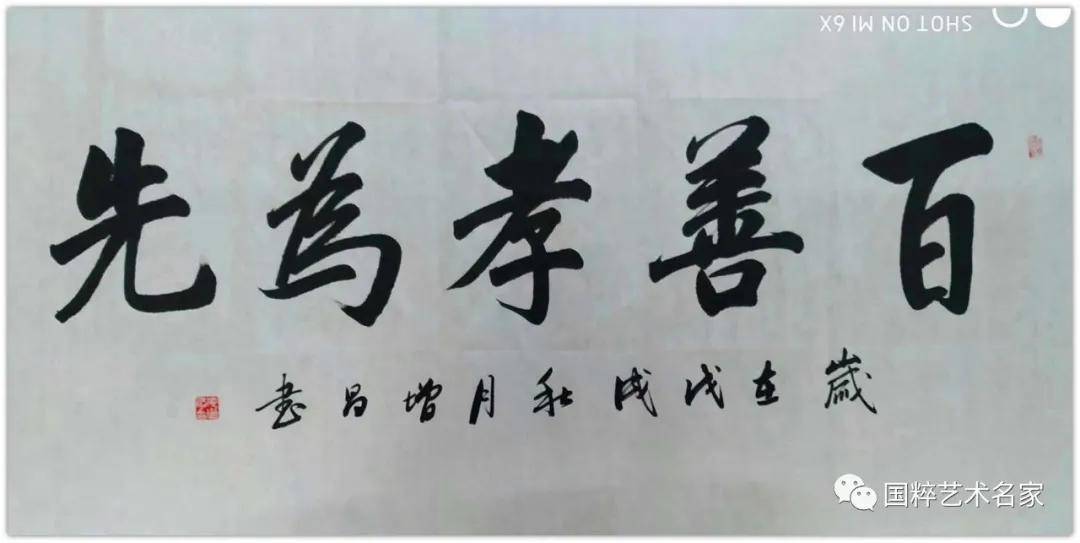 SHOT ON MI 6X
百善孝為先
歲在戊戌秋月增昌書
国粹艺术名家